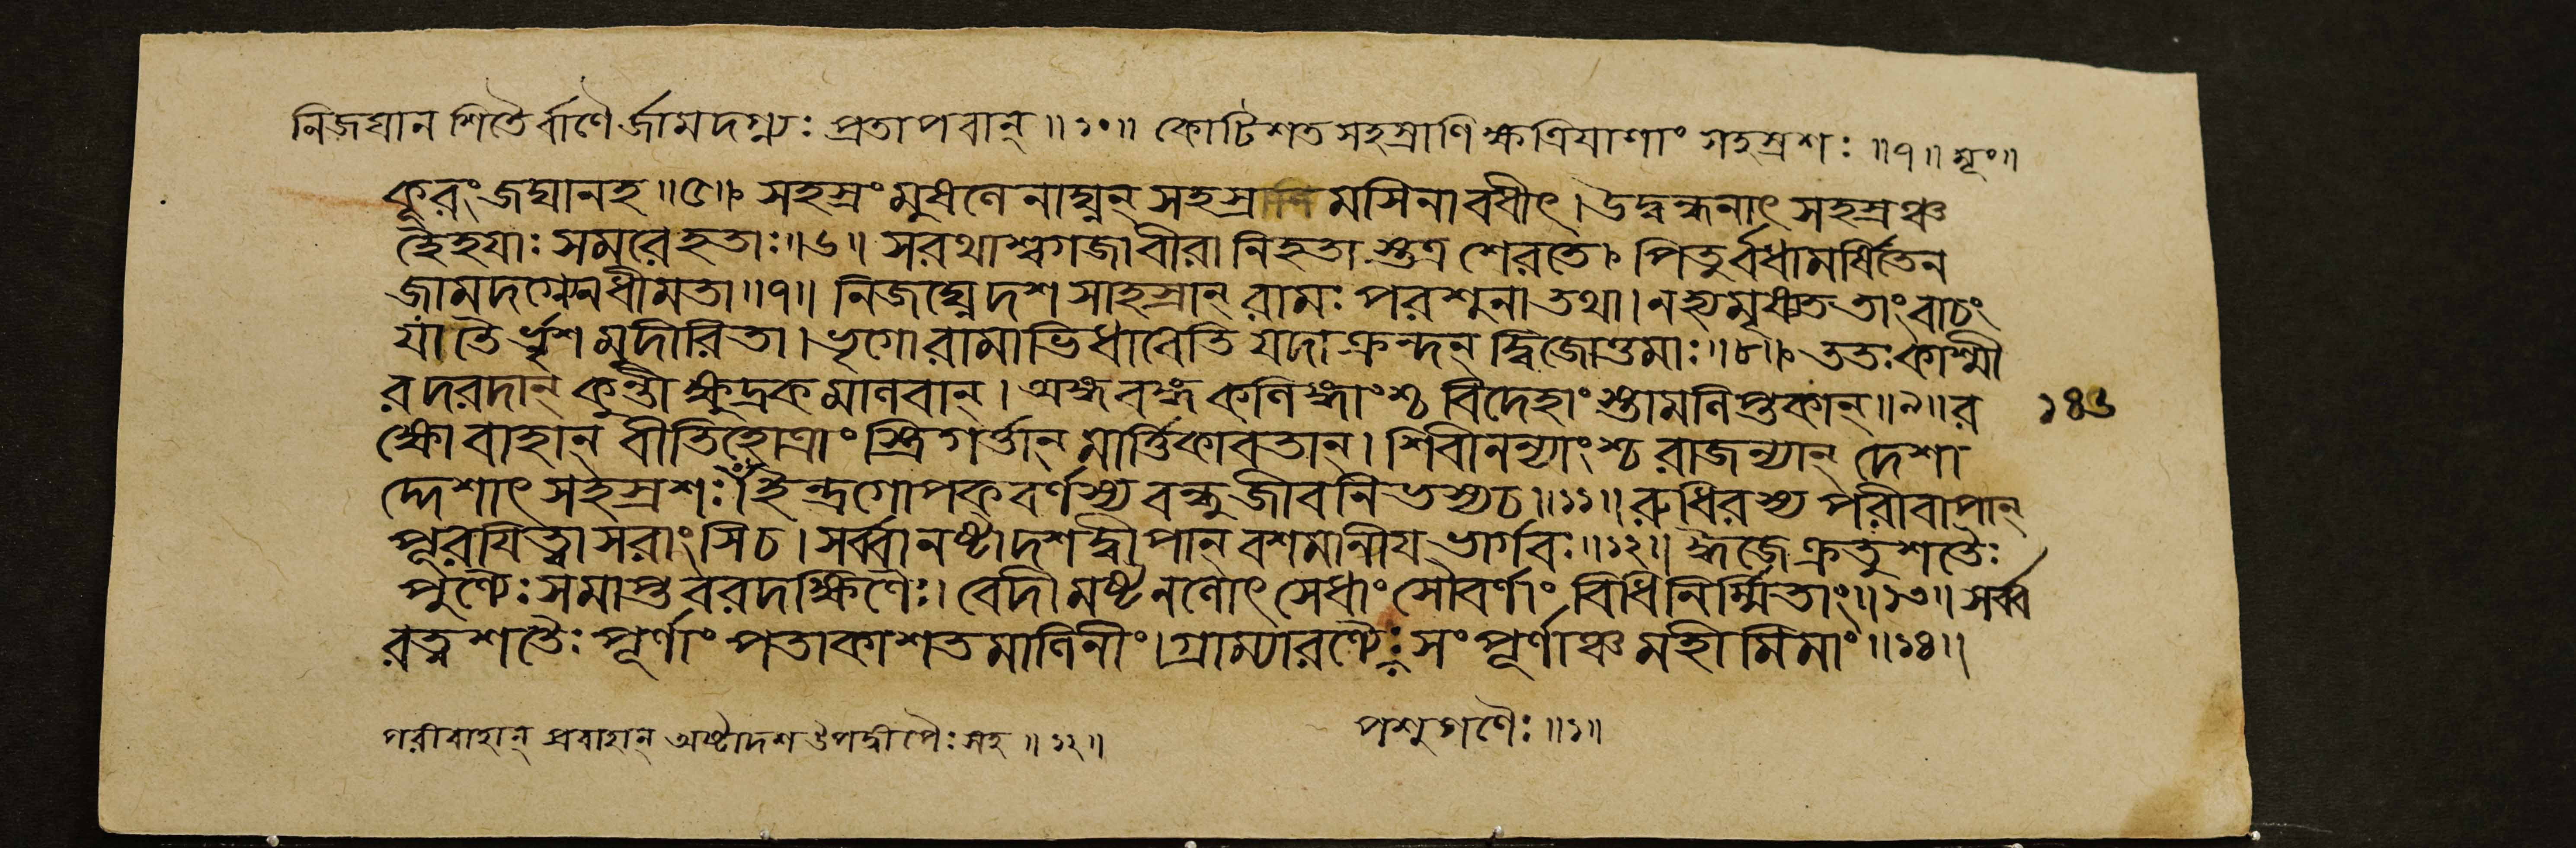 নিজঘান শিতৈর্বাণৈর্জামদগ্ন্যঃ প্রতাপবান্ ॥১০॥ কোটিশত সহস্রাণি ক্ষত্রিযাণাং সহস্রশঃ ॥৭॥ মূং॥
কূরং জঘানহ ॥৫॥ সহস্রং মুষলেনাঘ্নন্ সহস্রানি মসিনাবধীৎ। উদ্বন্ধনাৎ সহস্রঞ্চ
হৈহযাঃ সমরেহতাঃ॥৬॥ সরথাশ্বগজাবীরা নিহতা স্তত্র শেরতে। পিতুর্বধামর্ষিতেন
জামদগ্ন্যেনধীমতা॥৭॥ নিজঘ্নেদশ সাহস্রান্ রামঃ পরশুনা তথা। নহ্যমৃষ্যত তাং বাচং
যা তৈর্ভৃশ মুদীরিতা। ভৃগোরামাভিধাবেতি যদাক্রন্দন্ দ্বিজোত্তমাঃ॥৮॥ ততঃ কাশ্মী
র দরদান্ কুন্তী ক্ষুদ্রক মালবান্। অঙ্গ বঙ্গ কলিঙ্গাংশ্চ বিদেহাং স্তামলিপ্তকান্॥৯॥র ১৪৬
ক্ষোবাহান্ বীতিহোত্রাং স্ত্রিগর্ত্তান্ মার্ত্তিকাবতান্। শিবীনন্যাংশ্চ রাজন্যান্ দেশা
দ্দেশাৎ সহস্রশঃ। ইন্দ্রগোপক বর্ণস্য বন্ধুজীবনিভস্যচ॥১১॥ রুধিরস্য পরীবাপান্
পূরযিত্বা সরাংসিচ। সর্ব্বানষ্টাদশদ্বীপান্ বশমানীয ভার্গবঃ॥১২॥ ঈজে ক্রতুশতৈঃ
পুণ্যৈঃ সমাপ্ত বরদক্ষিণৈঃ। বেদীমষ্টনলোৎসেধাং সৌবর্ণাং বিধিনির্ম্মিতাং॥১৩॥ সর্ব্ব
রত্ন শতৈঃ পূর্ণাং পতাকাশতমালিনীং। গ্রাম্যারণ্যৈঃ সংপূর্ণাঞ্চ মহীমিমাং॥১৪॥
পরীবাহান্ প্রবাহান্ অষ্টাদশ উপদ্বীপৈঃ সহ ॥১২॥ পশুগণৈঃ ॥১॥